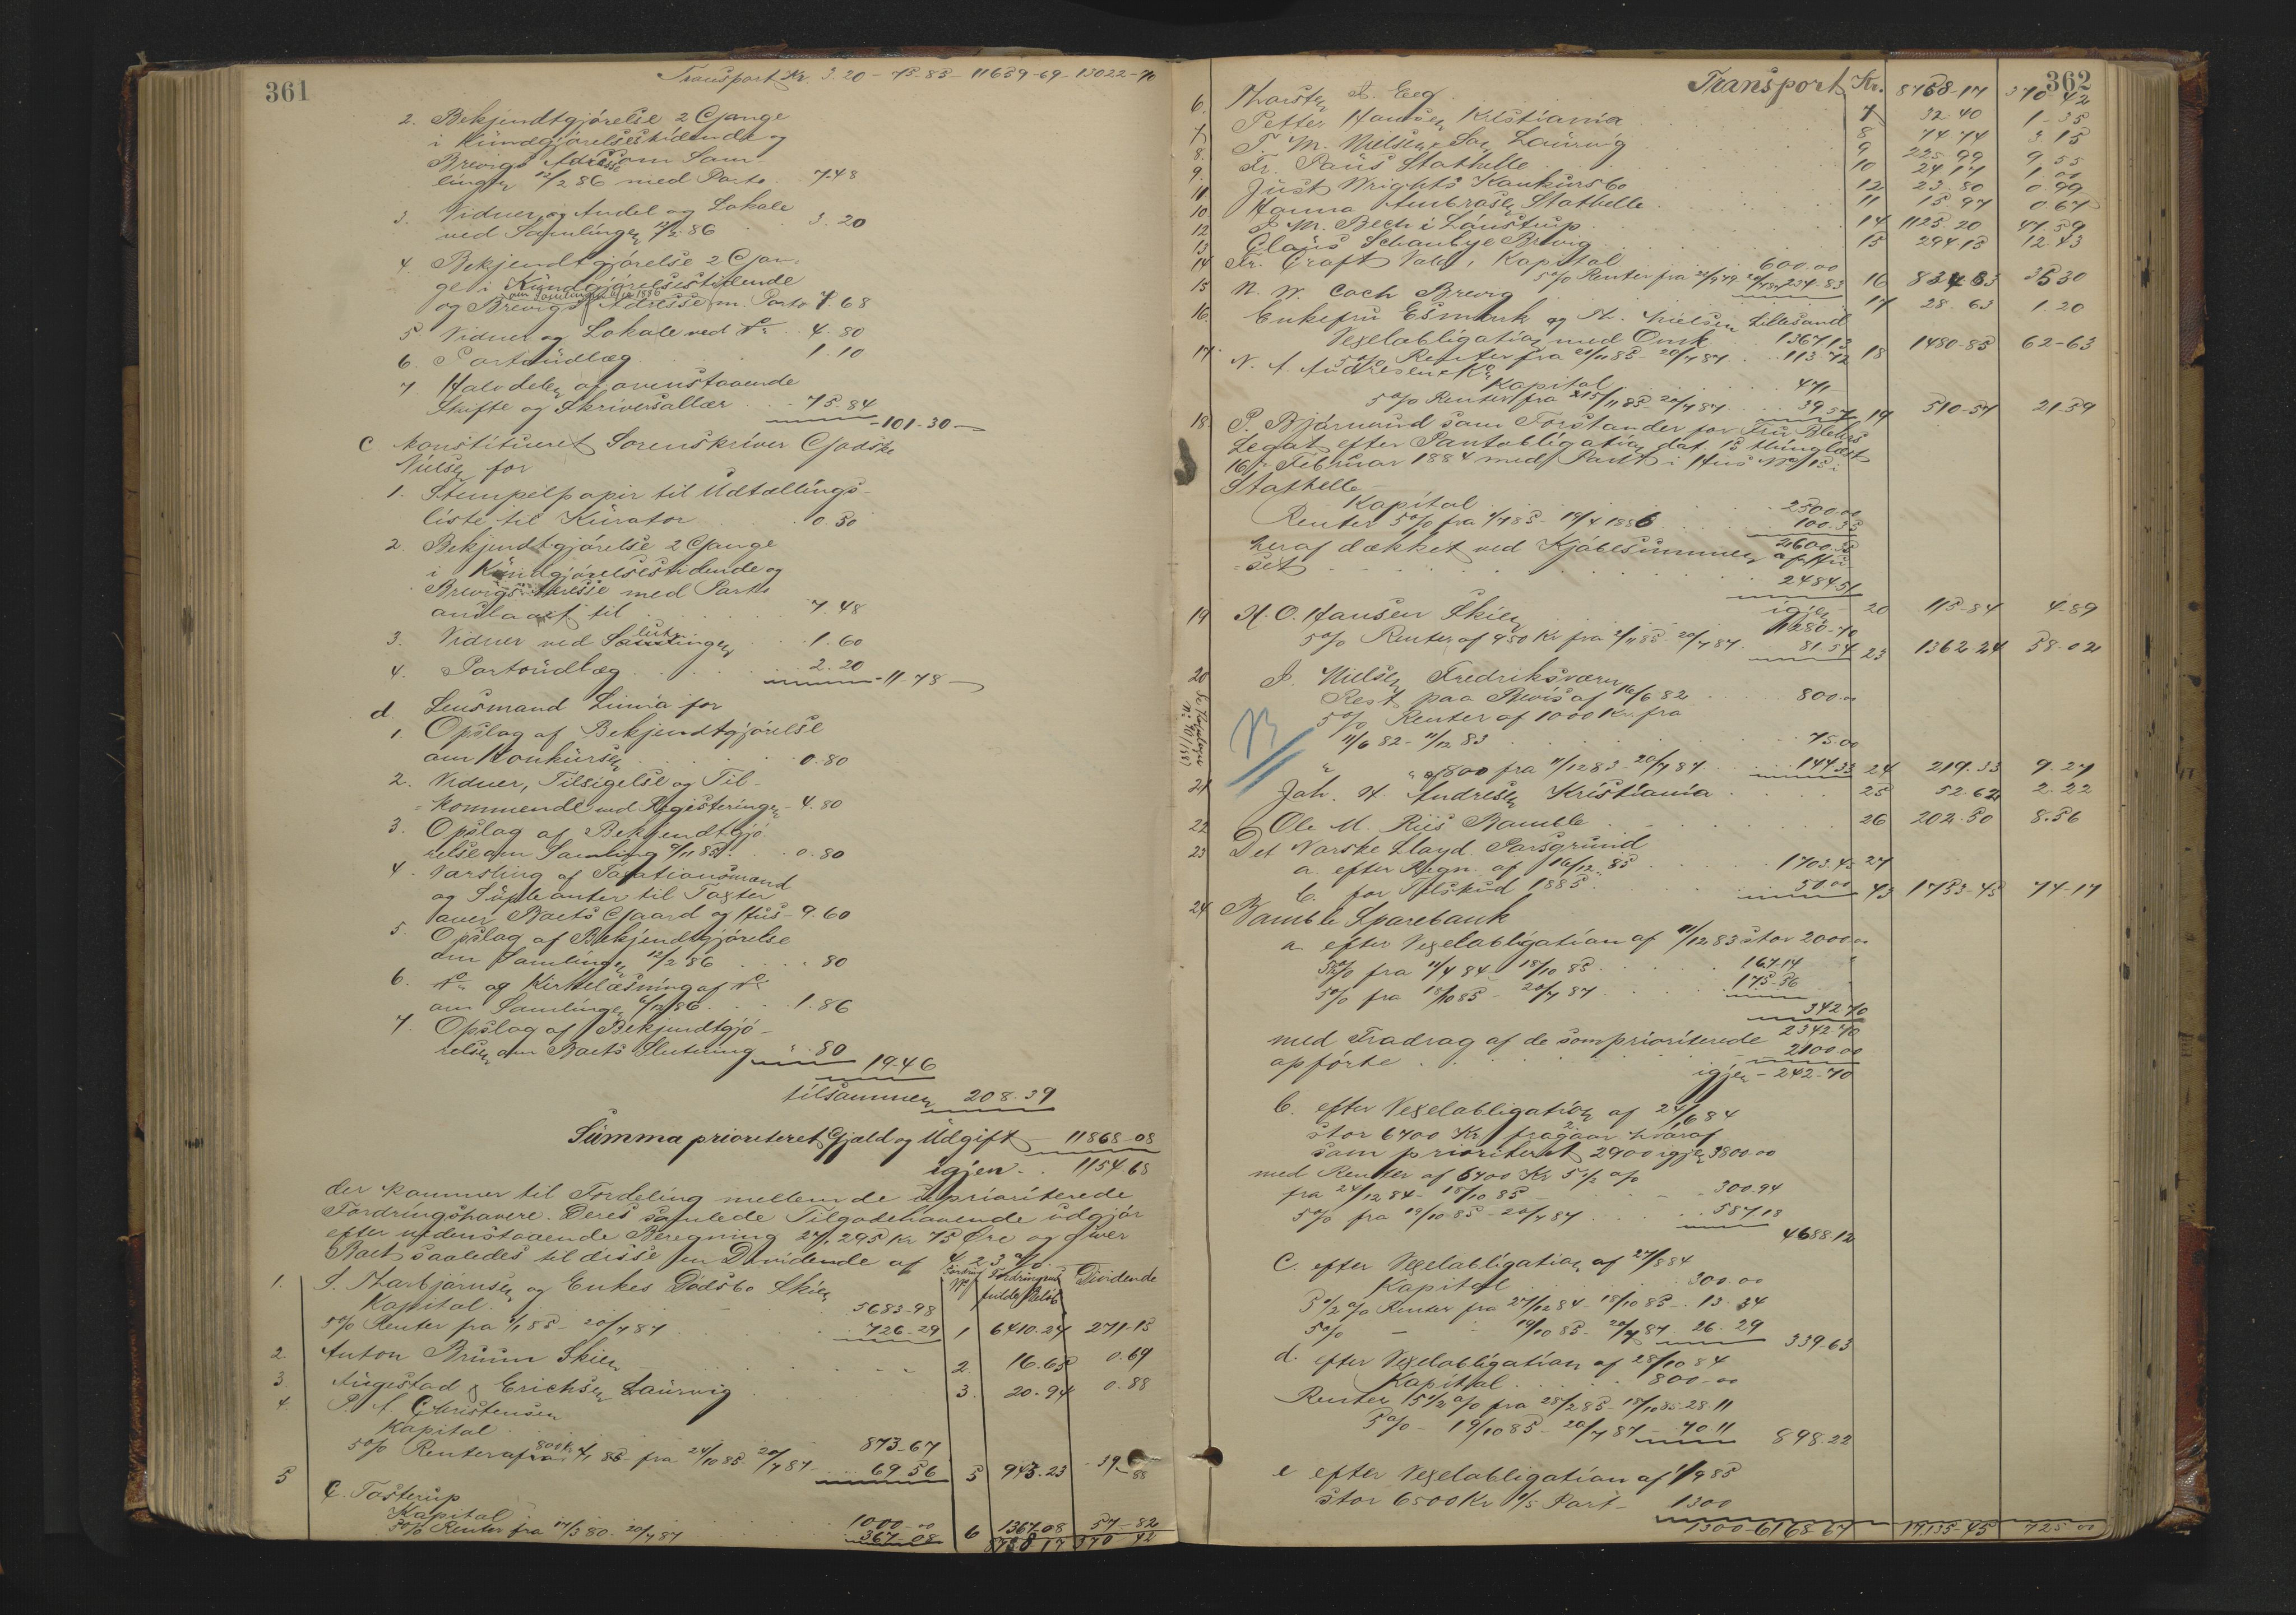 361
Transport Kr. 3.20 - 75.85 - 11659-69 - 13022-76
2. Bekjendtgjørelse 2 Gange
i Kundgjørelsestidende og
Brevigs Adresse om Sam-
lingen 12/2 86 med Porto 7.48
3. Vidner og Andel og Lokale
ved Samlingen 12/2 86 3.20
4. Bekjendtgjørelse 2 Gan-
ge i Kundgjørelsestidende
og Brevigs Adresse m. Porto 7.68
5 Vidner og Lokale ved do 4.80
6. Portoudlæg 1.10
7 Halvdelen af ovenstaaende
Skifte og Skriversallær 75.84
101.30
C Konstitueret Sorenskriver Godske
Nielsen for
1. Stempelpapir til Udtællings-
liste til Kurator 0.50
2. Bekjendtgjørelse 2 Gange
i Kundgjørelsestidende og
Brevigs Adresse med Porto
anslaaet til 7.48
3. Vidner ved Slutningen 1.60
4. Portoudlæg 2.20
11.78
d. Lensmand Linna for
1. Opslag af Bekjendtgjørelse
om Konkursen 0.80
2. Vidner, Tilsigelse og Til-
kommende ved Registeringen 4.80
3. Opslag af Bekjendtgjø-
relse om Samling 7/11 85 0.80
4. Varsling af Taxationsmænd
og Supleanter til Taxter
over Boets Gaard og Hus 9.60
5. Opslag af Bekjendtgjørelse
om Samlingen 12/2 86 80
6. do og Kirkelæsning af do
om Samlingen 6/12 86 1.86
7. Opslag af Bekjendtgjø-
relsen om Boets Slutning 80
19.46
tilsammen 208.39
Summa prioriteret Gjæld og Udgift 11868-08
igjen 1154.68
der kommer til Fordeling mellem de uprioriterede
Fordringshavere. Deres samlede Tilgodehavende udgjør
efter nedenstaaende Beregning 27,295 Kr 75 Øre og giver
Boet saaledes til disse en Dividende af 4,23 %.
Fordringens fulde Beløb Dividende
1. S. Thorbjørnsen og Enkes Dødsbo Skien
Kapital 5683-98
5% Renter fra 1/1 85 - 20/7 87 726-29 1 6410.27 271-15
2 Anton Bruun Skien 2 16.65 0.69
3 Augestad & Erichsen Laurvig 3. 20-94 0.88
4. P. A. Christensen
Kapital 873-67
5% Renter af 800 Kr fra 24/10 85 20/7 87 69.56 5 943.23 39.88
5 C. Tosterup
Kapital 1000-00
5% Renter fra 17/3 80. 20/7 87 367-08 6 1367.08 57-82
8758 17 370 42
362
Transport Kr. 8758-17 370-42
6. Thorsten A. Eeg 7 32 40 1-35
7 Petter Hansen Kristiania 8 74 74 3 15
8. T. M. Nielsen & Søn Laurvig 9 225 99 9.55
9. Fr. Paus Stathelle 10 24 17 1.00
11 Just Wrights Konkursbo 12 23.80 0.99
10. Hanna Ambrosen Stathelle 11 15 97 0 67
12 J. M. Bech i Laustrup 14 1125.20 47.59
13 Claus Schanbye Brevig 15 294.15 12.43
14 Fr. Croft Vold, Kapital 600.00
5% Renter fra 21/9 79 20/7 87 234.83 16 834 83 35 30
15 N. W. Coch Brevig 17 28.63 1.20
16. Enkefru Esmark og N. Nielsen Lillesand
Vexelobligation med Omk 1367.13
5% Renter fra 21/11 85 - 20/7 87 113-72 18 1480-85 62-63
17. N. A. Andresen & Ko
Kapital 471-
5% Renter fra 25/11 85 - 20/7 87 39.57 19 510-57 21.59
18. P. Bjørnund som Forstander for Fru Blehrs
Legat efter Pantobligation dat. 15 thinglæst
16 Februar 1884 med Pant i Hus No 15 i
Stathelle
Kapital 2500.00
Renter 5% fra 1/7 85 - 19/4 1886 100.35
2600.35
heraf dækket ved Kjøbesummen af Hu-
set 2484.51
igjen 20 115-84 4-89
19 H. O. Hansen Skien 1280-70
5% Renter af 950 Kr fra 2/11 85 - 20/7 87 81.54 23 1362.24 58.02
20 J. Nielsen Fredriksværn
Rest paa Bevis af 16/6 82 800.00
5% Renter af 1000 Kr fra
11/6 82 - 11/12 83 75.00
" " af 800 fra 11/12 83 - 20/7 87 144.33 24 219.33 9.27
21 Joh. H. Andresen Kristiania 25 52.62 2.22
22 Ole M. Riis Bamble 26 202.50 8.56
23 Det Norske Lloyd. Porsgrund
a. efter Regn. af 16/12 85 1703.45 27
b. for Tilskud 1885 50.00 43 1753-45 74-17
24 Bamble Sparebank
a. efter Vexelobligation af 11/12 83 stor 2000.00
5 1/2 % fra 11/4 84 - 18/10 85 167.14
5% fra 18/10 85 - 20/7 87 175.56
342.70
2342.70
med Fradrag af de som prioriterede
opførte 2100.00
igjen - 242-70
b. efter Vexelobligation af 24/6 84
stor 6700 Kr, fragaar hvoraf
som prioriteret 2900 igjen 3800.00
med Renter af 6700 Kr 5 1/2 %
fra 24/12 84 - 18/10 85 300.94
5% fra 19/10 85 - 20/7 87 587.18
4688.12
C. efter Vexelobligation af 27/8 84
Kapital 300.00
5 1/2 % Renter fra 27/12 84 - 18/10 85 13.34
5% - 19/10 85 - 20/7 87 26.29
339.63
d. efter Vexelobligation af 28/10 84
Kapital 800.00
Renter 5 1/2 % fra 28/2 85 - 18/10 85 28.11
5% - 19/10 85 - 20/7 87 70.11
898.22
e efter Vexelobligation af 1/9 85
stor 6500 Kr 1/5 Part 1300
1300-6168-67 17135-45 725.00